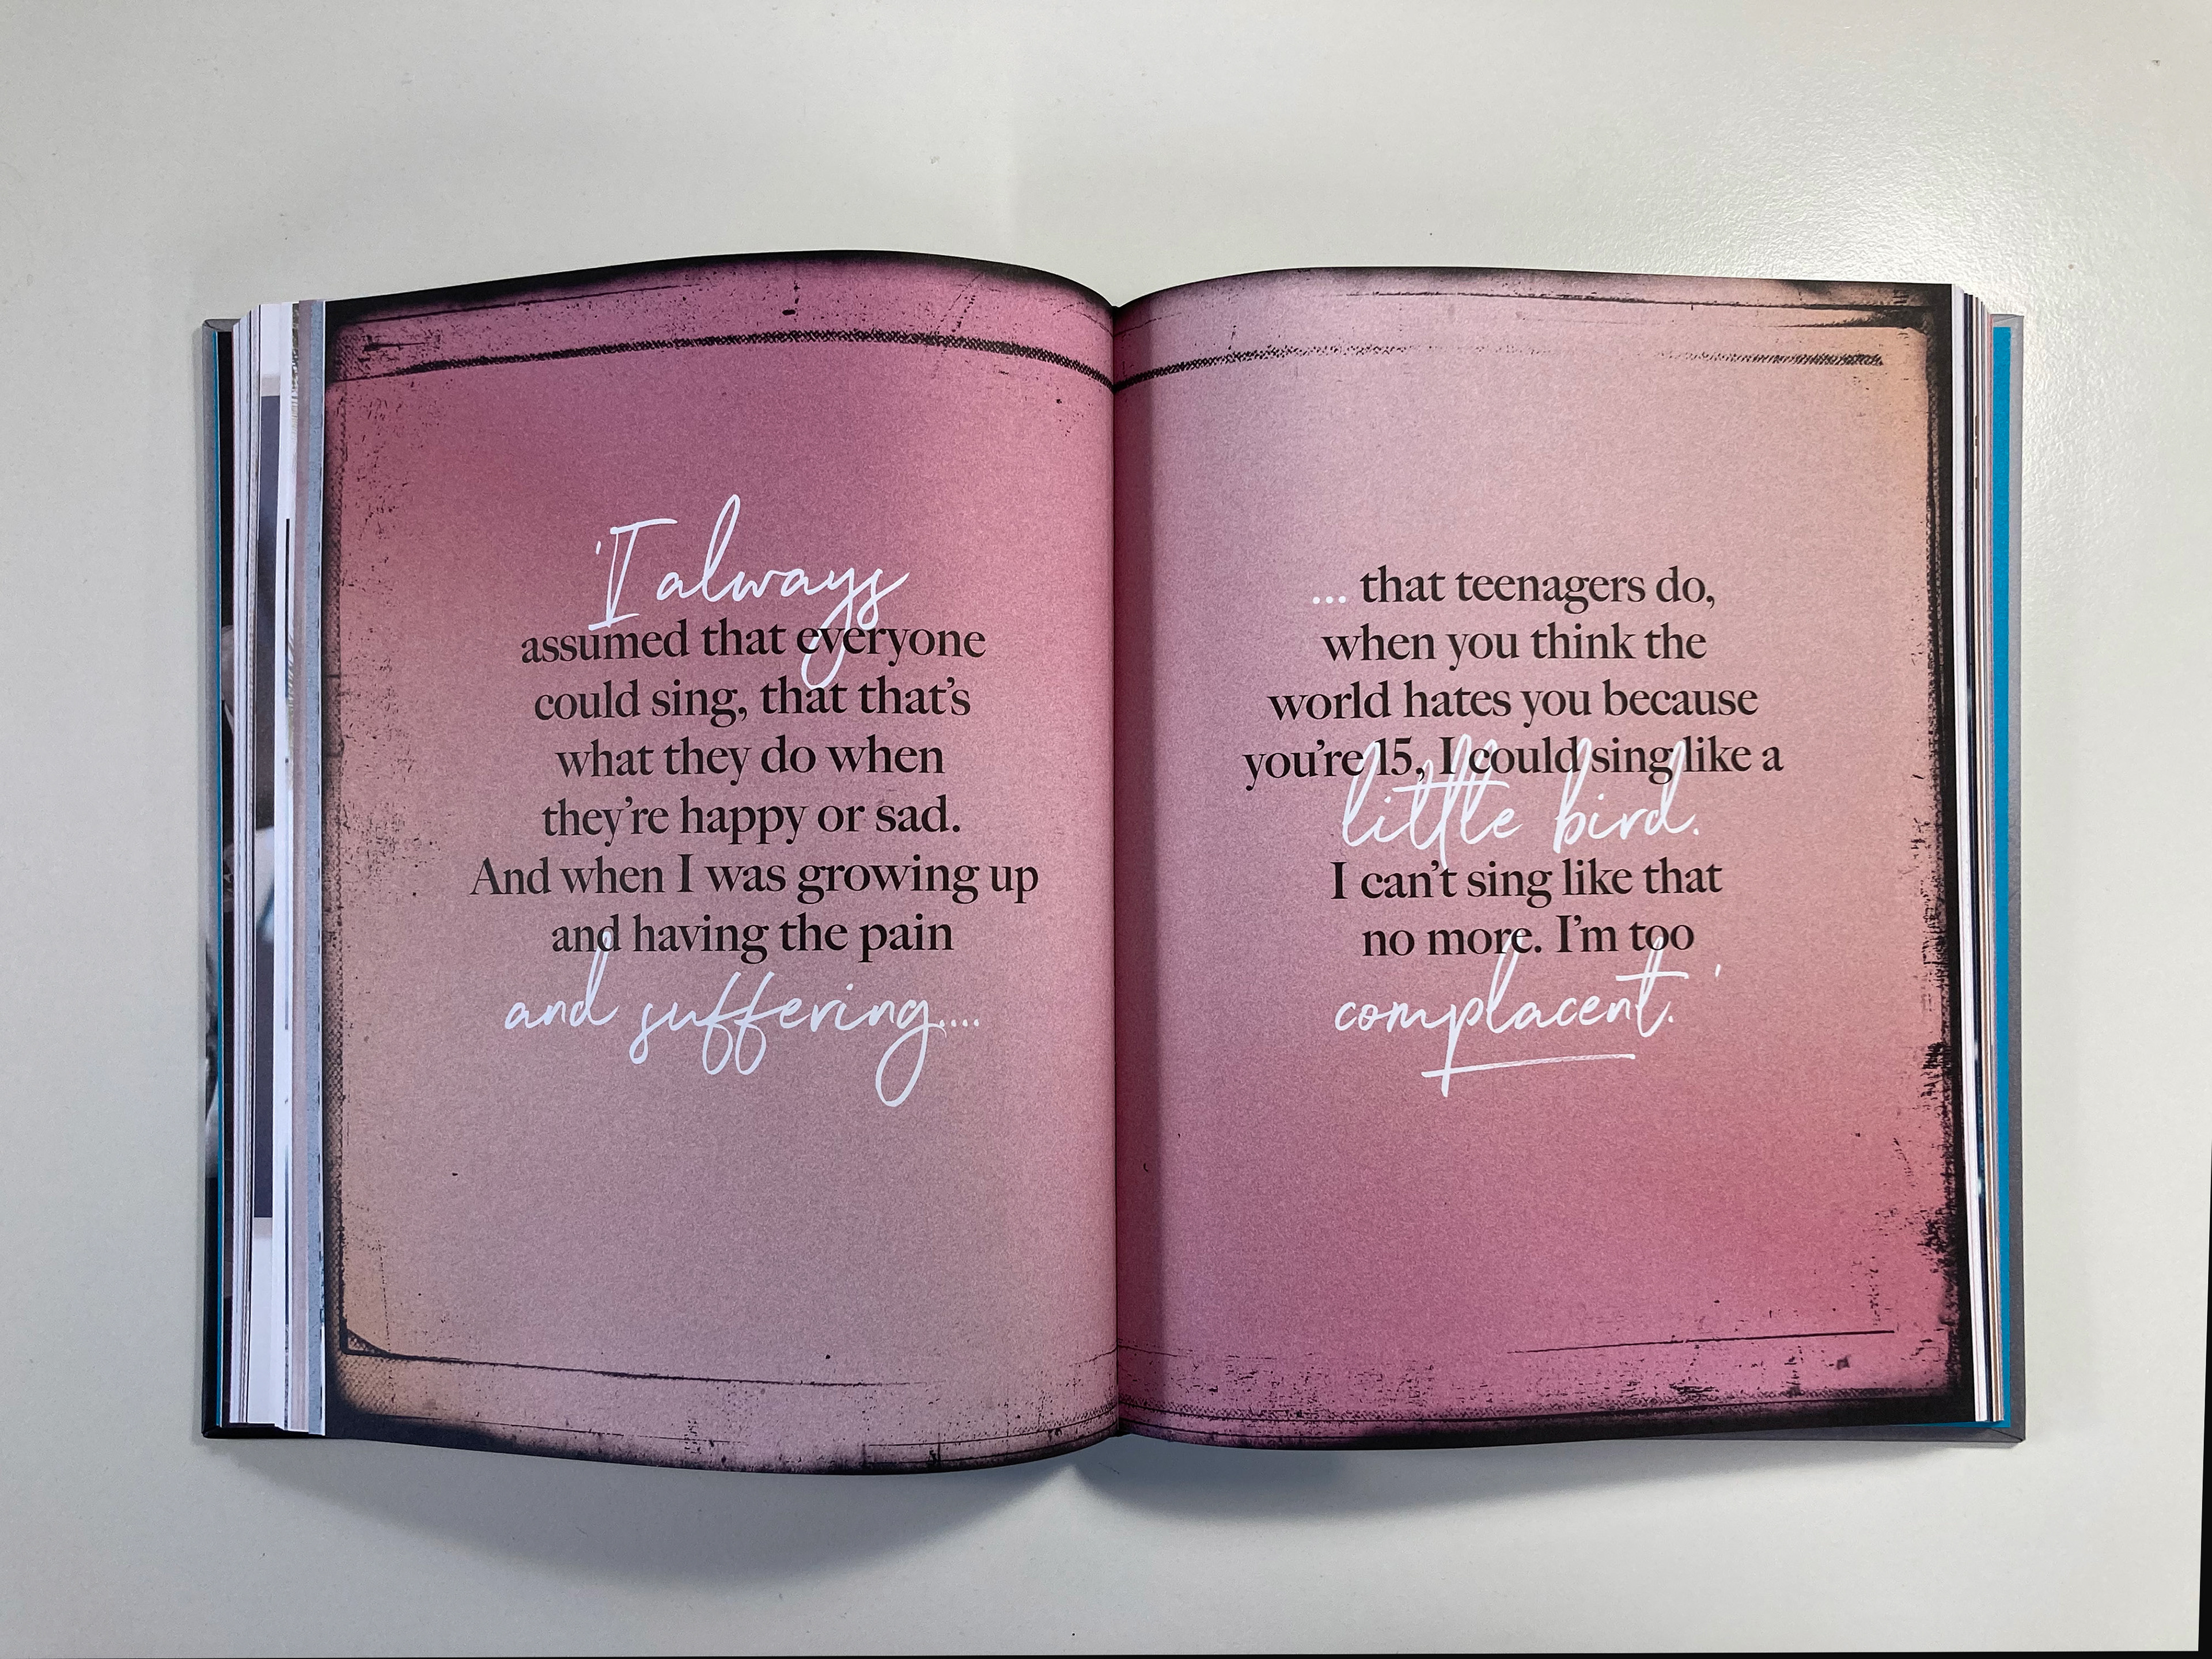 'I always
assumed that everyone
could sing, that that's
what they do when
they're happy or sad.
And when I was growing up
and having the pain
and suffering....
... that teenagers do,
when you think the
world hates you because
you're 15, I could sing like a
little bird.
I can't sing like that
no more. I'm too
complacent.'